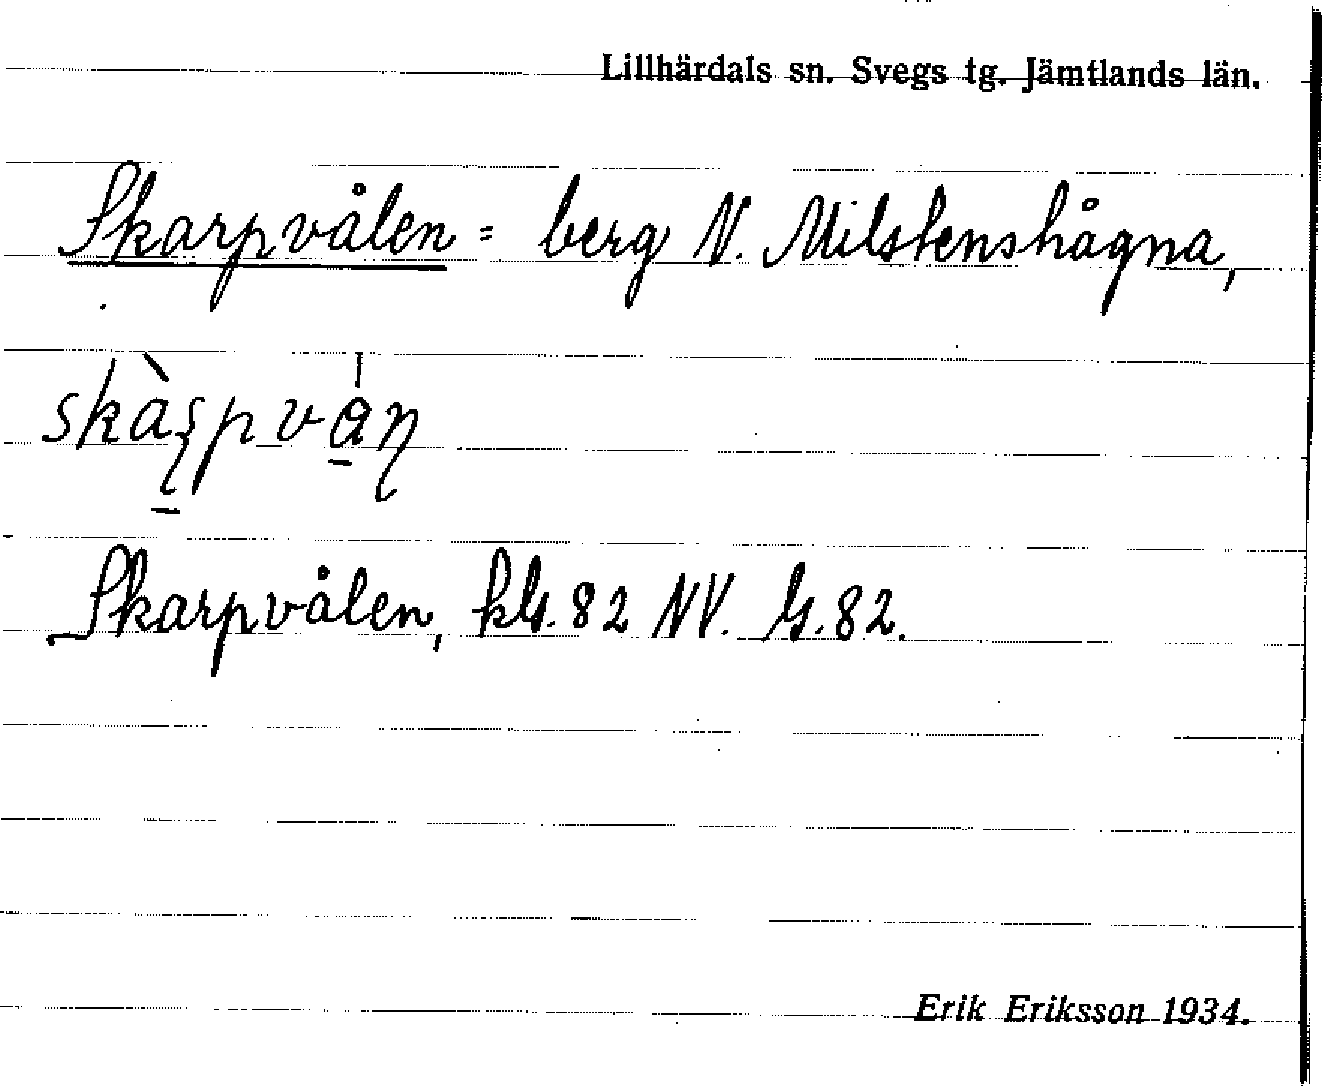 Lillhärdals sn. Svegs tg. Jämtlands län.
Skarpvålen = berg N. Milstenshågna,
Skarpvålen, kbl. 82 NV. G. 82.
Erik Eriksson 1934.